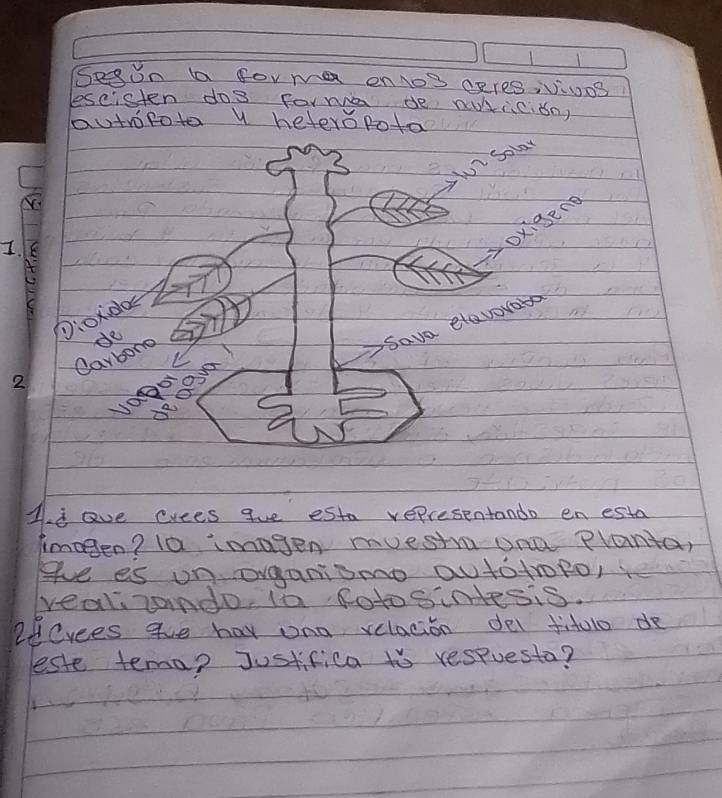 Según la forma en los ceres vivos
escisten dos forma de nutrición,
autrófota y heterófota
luz solar
oxigeno
Dioxido
de
Carbono
Sava elavoraba
Vapor
de agua
1.
2
1.¿ Que crees que esta representando en esta
imagen? la imagen muestra una Planta,
que es un organismo autótrofo,
realizando la fotosintesis.
2¿ Crees que hay una relación del titulo de
este tema? Justifica tú respuesta?